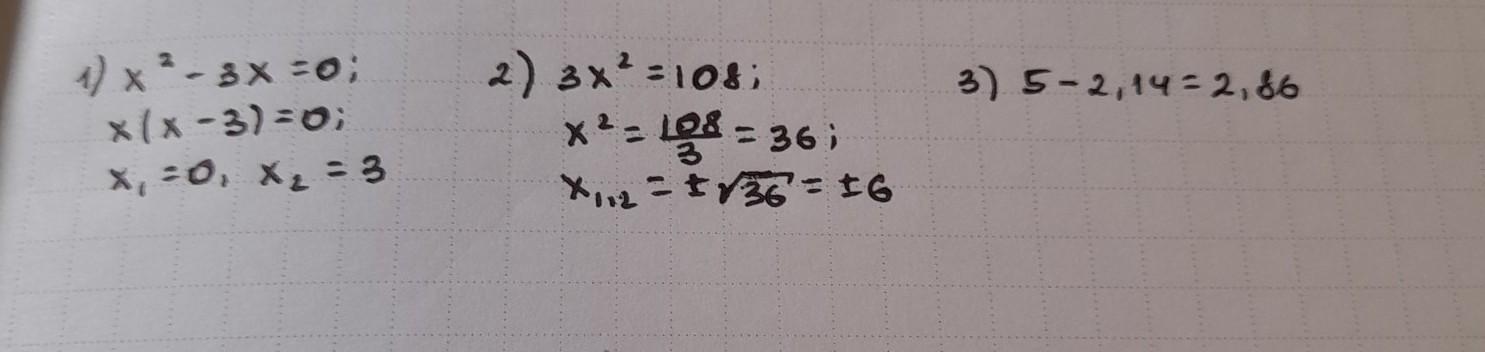 1) x² - 3x = 0;
x(x - 3) = 0;
x₁ = 0, x₂ = 3
2) 3x² = 108;
x² = 108/3 = 36;
x₁,₂ = ± √36 = ±6
3) 5 - 2,14 = 2,86